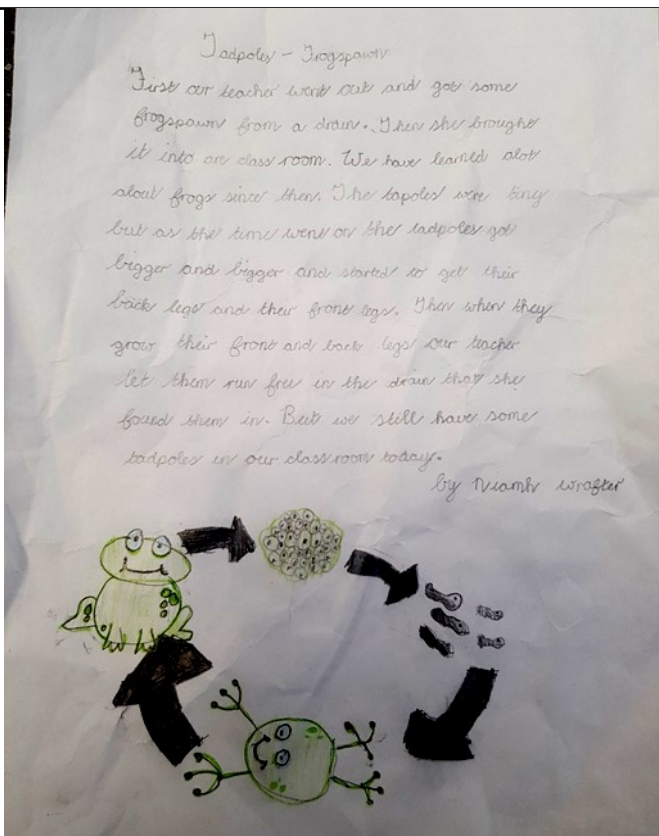 Tadpoles - Frogspawn
First our teacher went out and got some
frogspawn from a drain. Then she brought
it into are class room. We have learned alot
about frogs since then. The tapoles were tiny
but as the time went on the tadpoles got
bigger and bigger and started to get their
back legs and their front legs. Then when they
grow their front and back legs our teacher
let them run free in the drain that she
found them in. But we still have some
tadpoles in our class room today.
by Niamh Wrafter